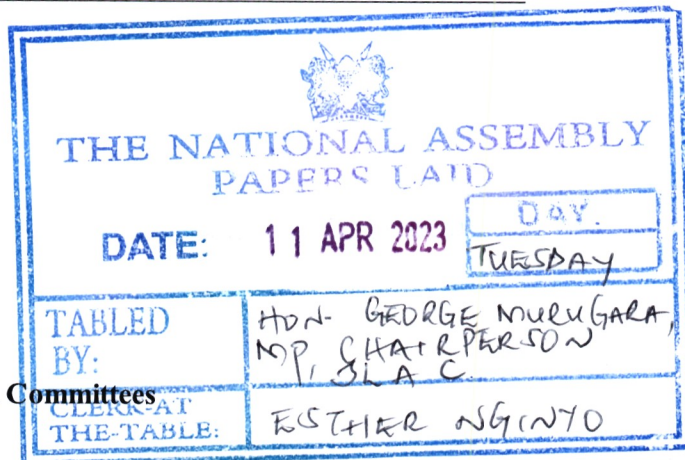 THE NATIONAL ASSEMBLY
PAPERS LAID
DATE: 11 APR 2023
DAY.
TUESDAY
TABLED
BY:
HON. GEORGE MURUGARA,
MP, CHAIRPERSON
JLAC
Committees
CLERK-AT
THE-TABLE:
ESTHER NGINYO